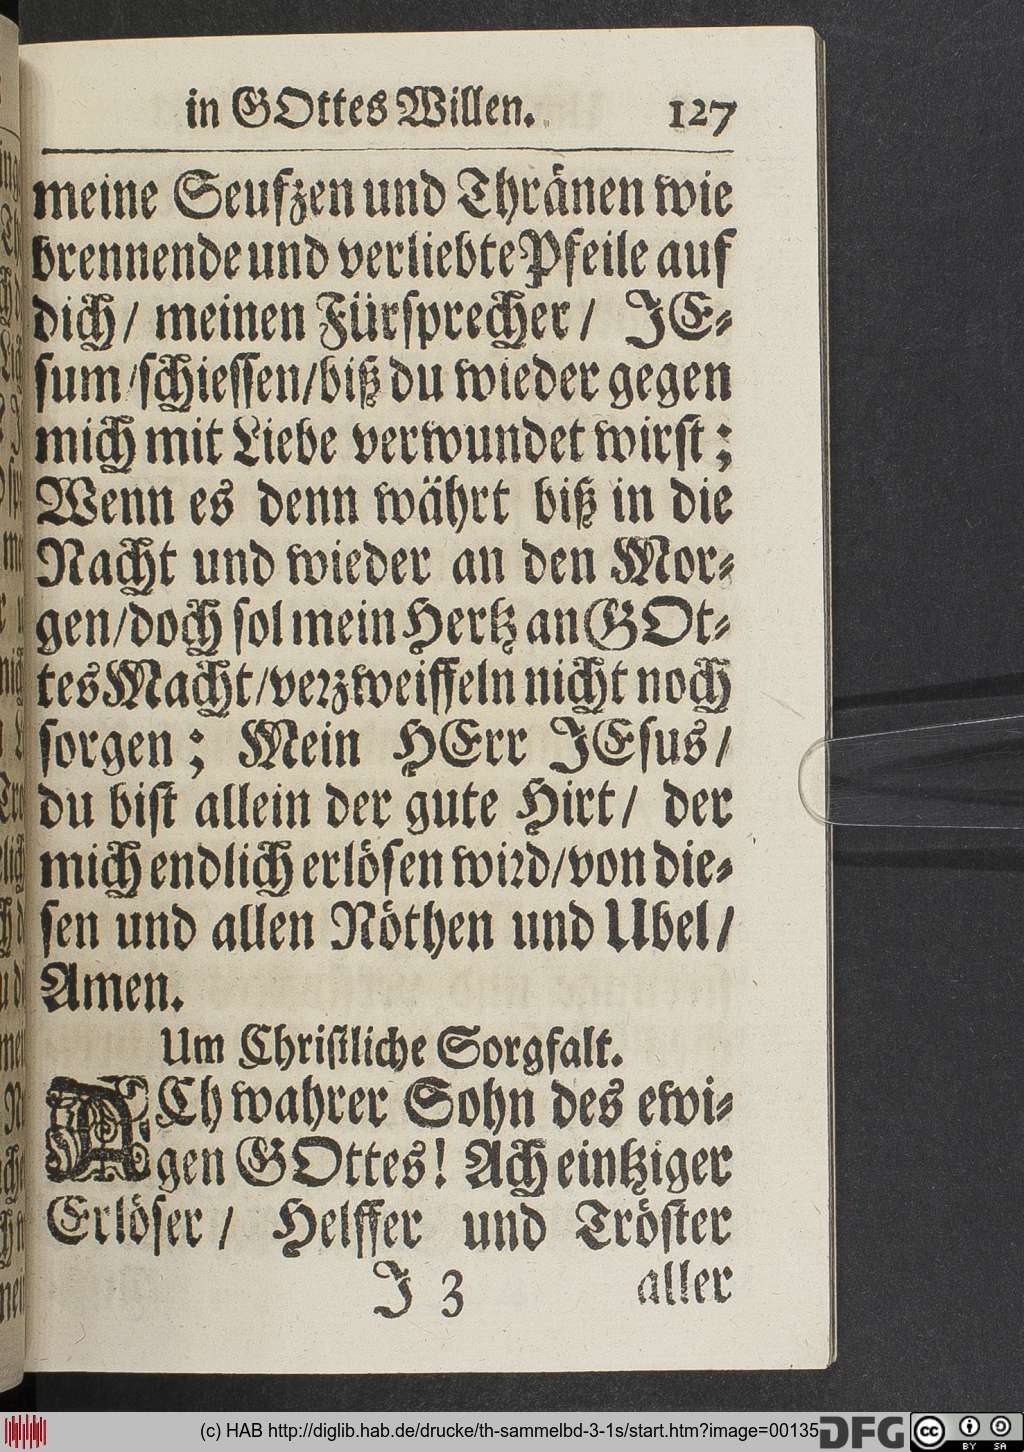 in GOttes Willen. 127
meine Seufzen und Thränen wie
brennende und verliebte Pfeile auf
dich/ meinen Fürsprecher/ JE-
sum/schiessen/biß du wieder gegen
mich mit Liebe verwundet wirst;
Wenn es denn währt biß in die
Nacht und wieder an den Mor-
gen/doch sol mein Hertz an GOt-
tes Macht/verzweiffeln nicht noch
sorgen; Mein HErr JEsus/
du bist allein der gute Hirt/ der
mich endlich erlösen wird/von die-
sen und allen Nöthen und Ubel/
Amen.
Um Christliche Sorgfalt.
ACh wahrer Sohn des ewi-
gen GOttes! Ach eintziger
Erlöser/ Helffer und Tröster
J 3 aller
(c) HAB http://diglib.hab.de/drucke/th-sammelbd-3-1s/start.htm?image=00135
DFG cc BY SA